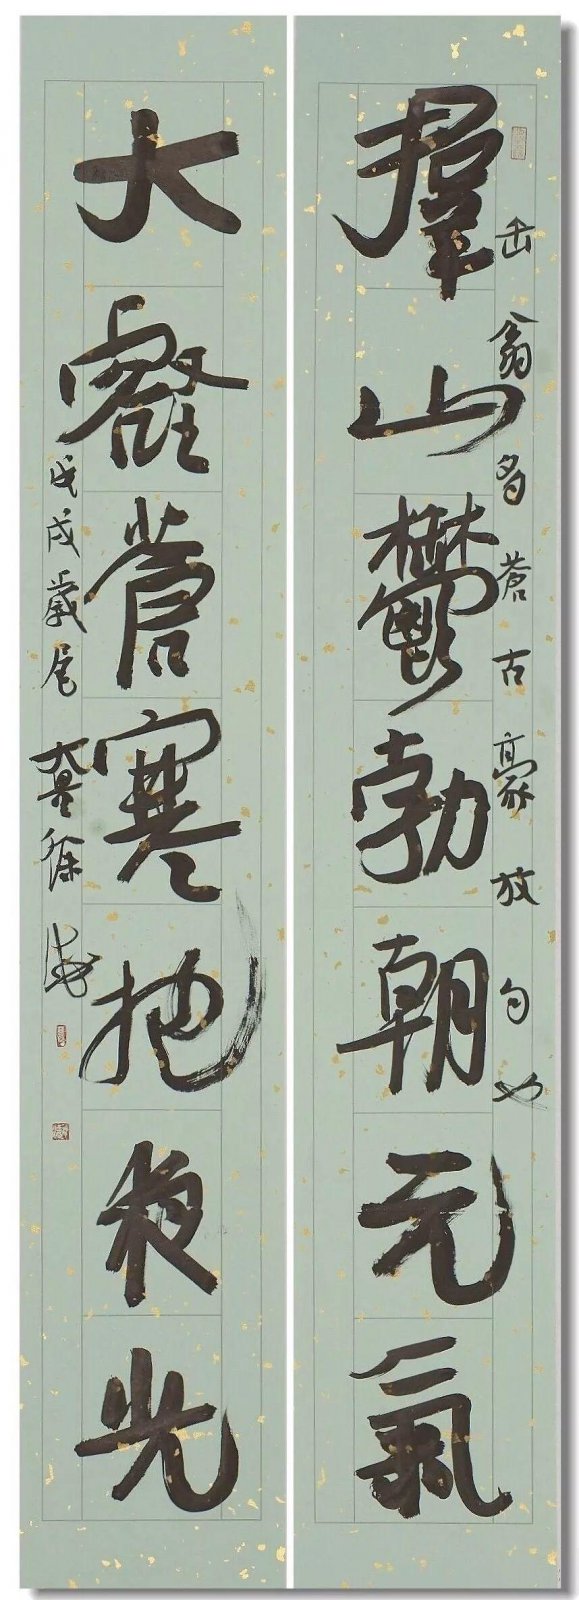 羣山鬱勃朝元氣
缶翁多蒼古豪放句也
大壑蒼寒抱夜光
戊戌歲尾 徐